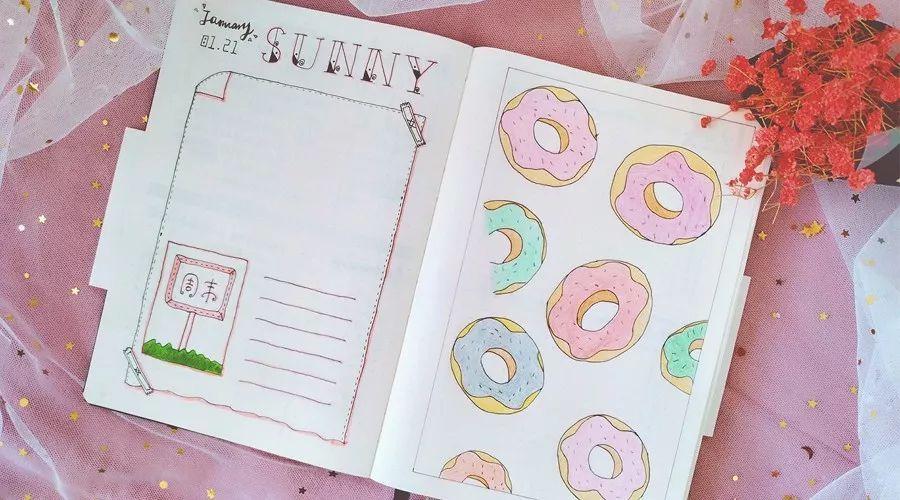 January
01.21
SUNNY
周末